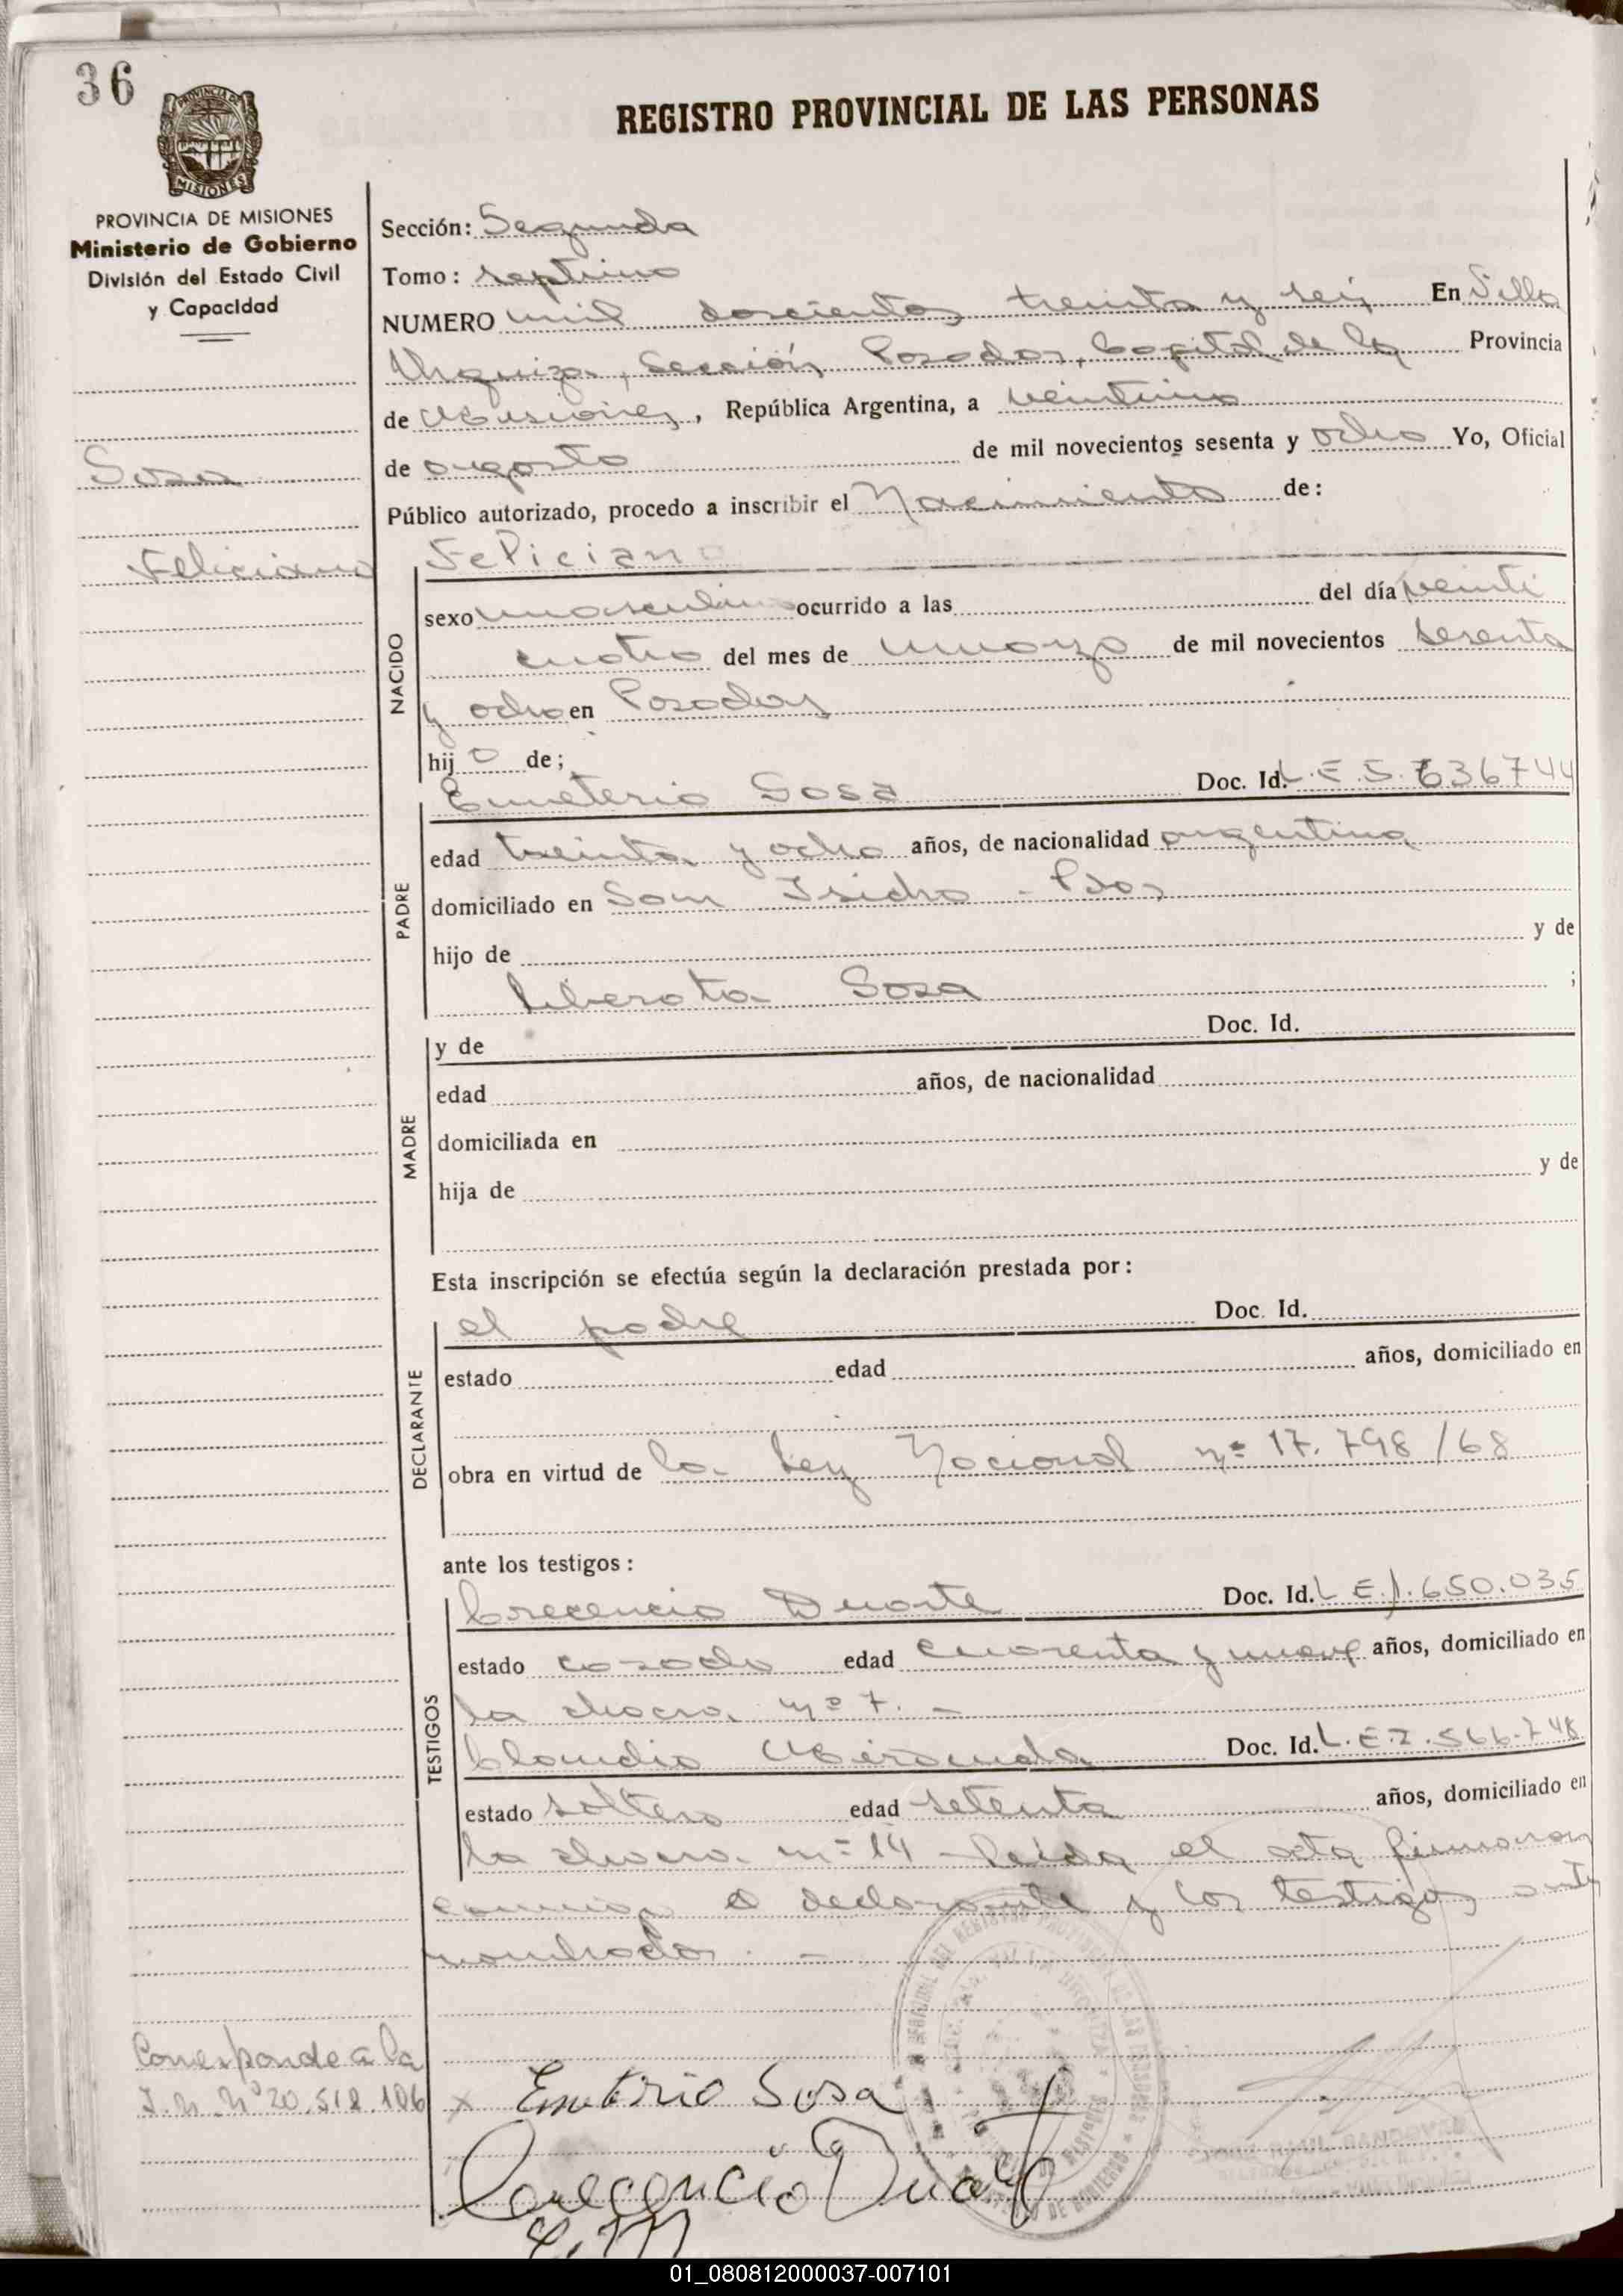 36
REGISTRO PROVINCIAL DE LAS PERSONAS
PROVINCIA DE MISIONES
Ministerio de Gobierno
División del Estado Civil
y Capacidad
Sosa
Feliciano
Sección: Segunda
Tomo: septimo
NUMERO mil doscientos treinta y seis En Villa
Urquiza, Sección Posadas, Capital de la Provincia
de Misiones, República Argentina, a veintiuno
de agosto de mil novecientos sesenta y ocho Yo, Oficial
Público autorizado, procedo a inscribir el Nacimiento de:
NACIDO
Feliciano
sexo masculino ocurrido a las del día veinti
cuatro del mes de marzo de mil novecientos sesenta
y ocho en Posadas
hijo de;
PADRE
Emeterio Sosa Doc. Id. L.E.5.636744
edad treinta y ocho años, de nacionalidad argentina
domiciliado en San Isidro - Pdas
hijo de y de
Liberata Sosa ;
MADRE
y de Doc. Id.
edad años, de nacionalidad
domiciliada en
hija de y de
Esta inscripción se efectúa según la declaración prestada por:
DECLARANTE
el padre Doc. Id.
estado edad años, domiciliado en
obra en virtud de la Ley Nacional nº 17.798/68
ante los testigos:
TESTIGOS
Crecencio Duarte Doc. Id. L.E.1.650.035
estado casado edad cuarenta y nueve años, domiciliado en
la chacra nº 7. -
Claudio Miranda Doc. Id. L.E.2.566.748
estado soltero edad setenta años, domiciliado en
la chacra nº 14 - Leída el acta firmaron
conmigo el declarante y los testigos ante
nombrados. -
Corresponde a la
I.N. Nº 20.518.106
x Emeterio Sosa
Crecencio Duarte
C.M
01_080812000037-007101